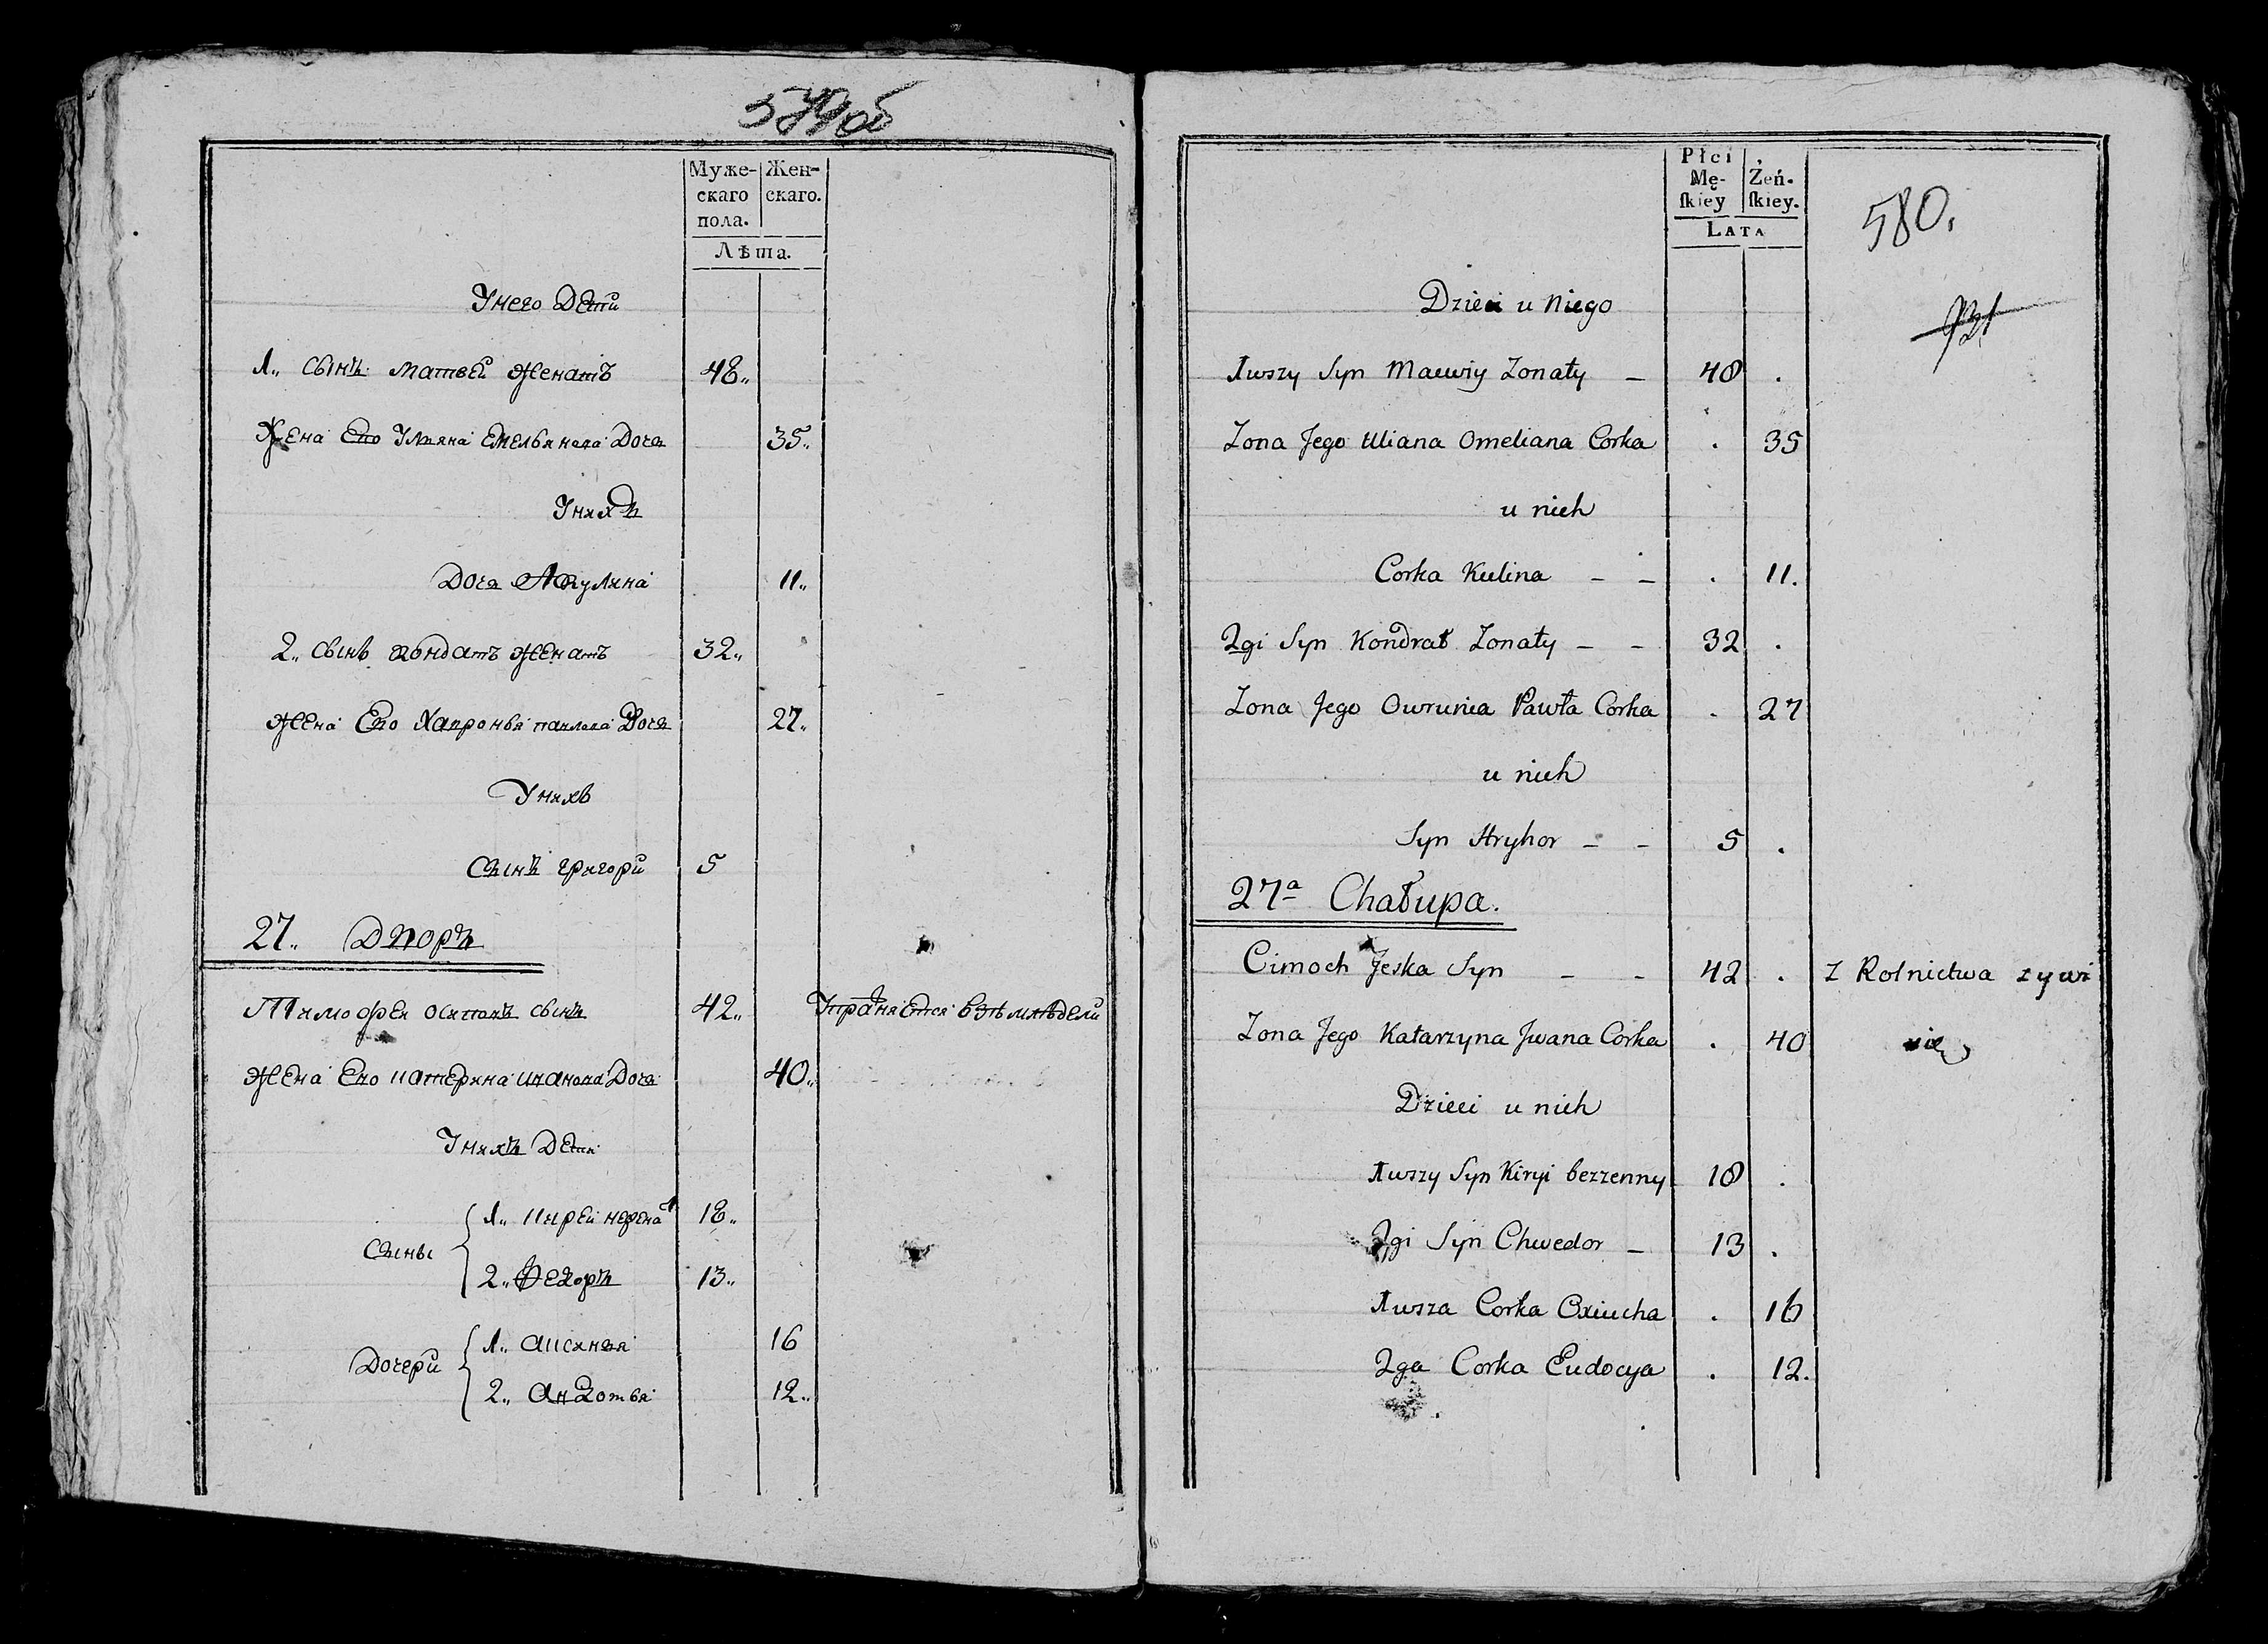 579об
Муже-
скаго
пола.
Жен-
скаго.
Лѣта.
Унего Дети
1,, сынъ матвей женатъ 48,,
Жена Ево Ульяна Емельянова Дочь 35,,
Унихъ
Дочь Акулина 11,,
2,, сынъ кондатъ женатъ 32,,
жена Ево Хапронья павлова Дочь 27,,
Унихъ
сынъ григори 5
27,, Дворъ
Тимофеи осиповъ сынъ 42,, Упражняется вземледели
жена Ево катерина иванова Дочь 40,,
Унихъ Дети
сыны
1,, кирей нежена 18,,
2,, Федоръ 13,,
Дочери
1,, аксинья 16
2,, Авдотья 12,,
Płci
Mę-
ſkiey
Żeń-
ſkiey.
Lata
580.
Dzieci u Niego
1wszy Syn Maciwiy Zonaty – 48 .
Zona Jego Uliana Omeliana Corka . 35
u nich
Corka Kulina – – . 11.
2gi Syn Kondrat Zonaty – – 32 .
Zona Jego Owrunia Pawła Corka . 27
u nich
Syn Hryhor – – 5 .
27a Chałupa.
Cimoch Jeska Syn – – 42 . Z Rolnictwa zywi
Zona Jego Katarzyna Jwana Corka . 40 się
Dzieci u nich
1wszy Syn Kiryi bezzenny 18 .
2gi Syn Chwedor – 13 .
1wsza Corka Oxiucha . 16
2ga Corka Eudocya . 12.